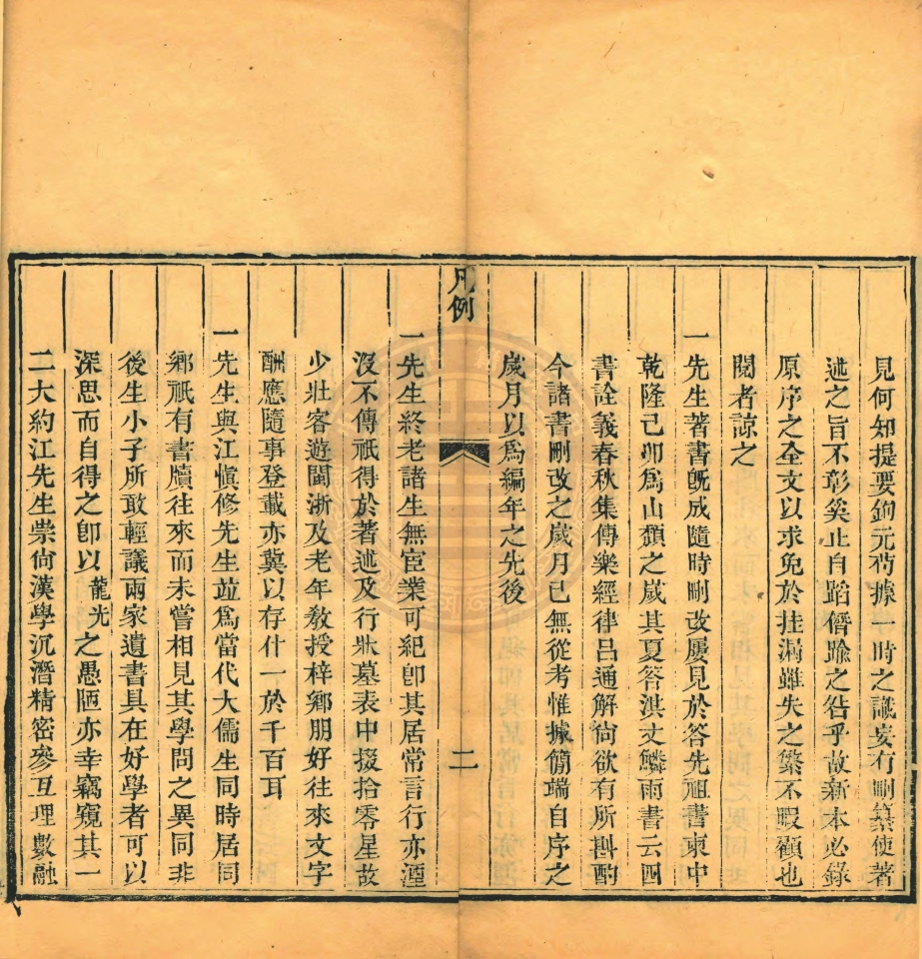 見何知提要鉤元苟據一時之識妄有刪纂使著
述之旨不彰矣止自蹈僭踰之咎乎故新本必錄
原序之全文以求免於挂漏雖失之繁不暇顧也
閱者諒之
一先生著書旣成隨時刪改屢見於答先祖書柬中
乾隆己卯爲山頹之歲其夏答洪丈鱗雨書云四
書詮義春秋集傳樂經律呂通解尙欲有所斟酌
今諸書刪改之歲月已無從考惟據簡端自序之
歲月以爲編年之先後
凡例
二
一先生終老諸生無宦業可紀卽其居常言行亦湮
沒不傳祇得於著述及行狀墓表中掇拾零星故
少壯客遊閩浙及老年敎授梓鄉朋好往來文字
酬應隨事登載亦冀以存什一於千百耳
一先生與江愼修先生竝爲當代大儒生同時居同
鄉祇有書牘往來而未嘗相見其學問之異同非
後生小子所敢輕議兩家遺書具在好學者可以
深思而自得之卽以龍光之愚陋亦幸竊窺其一
二大約江先生崇尙漢學沉潛精密參互理數融